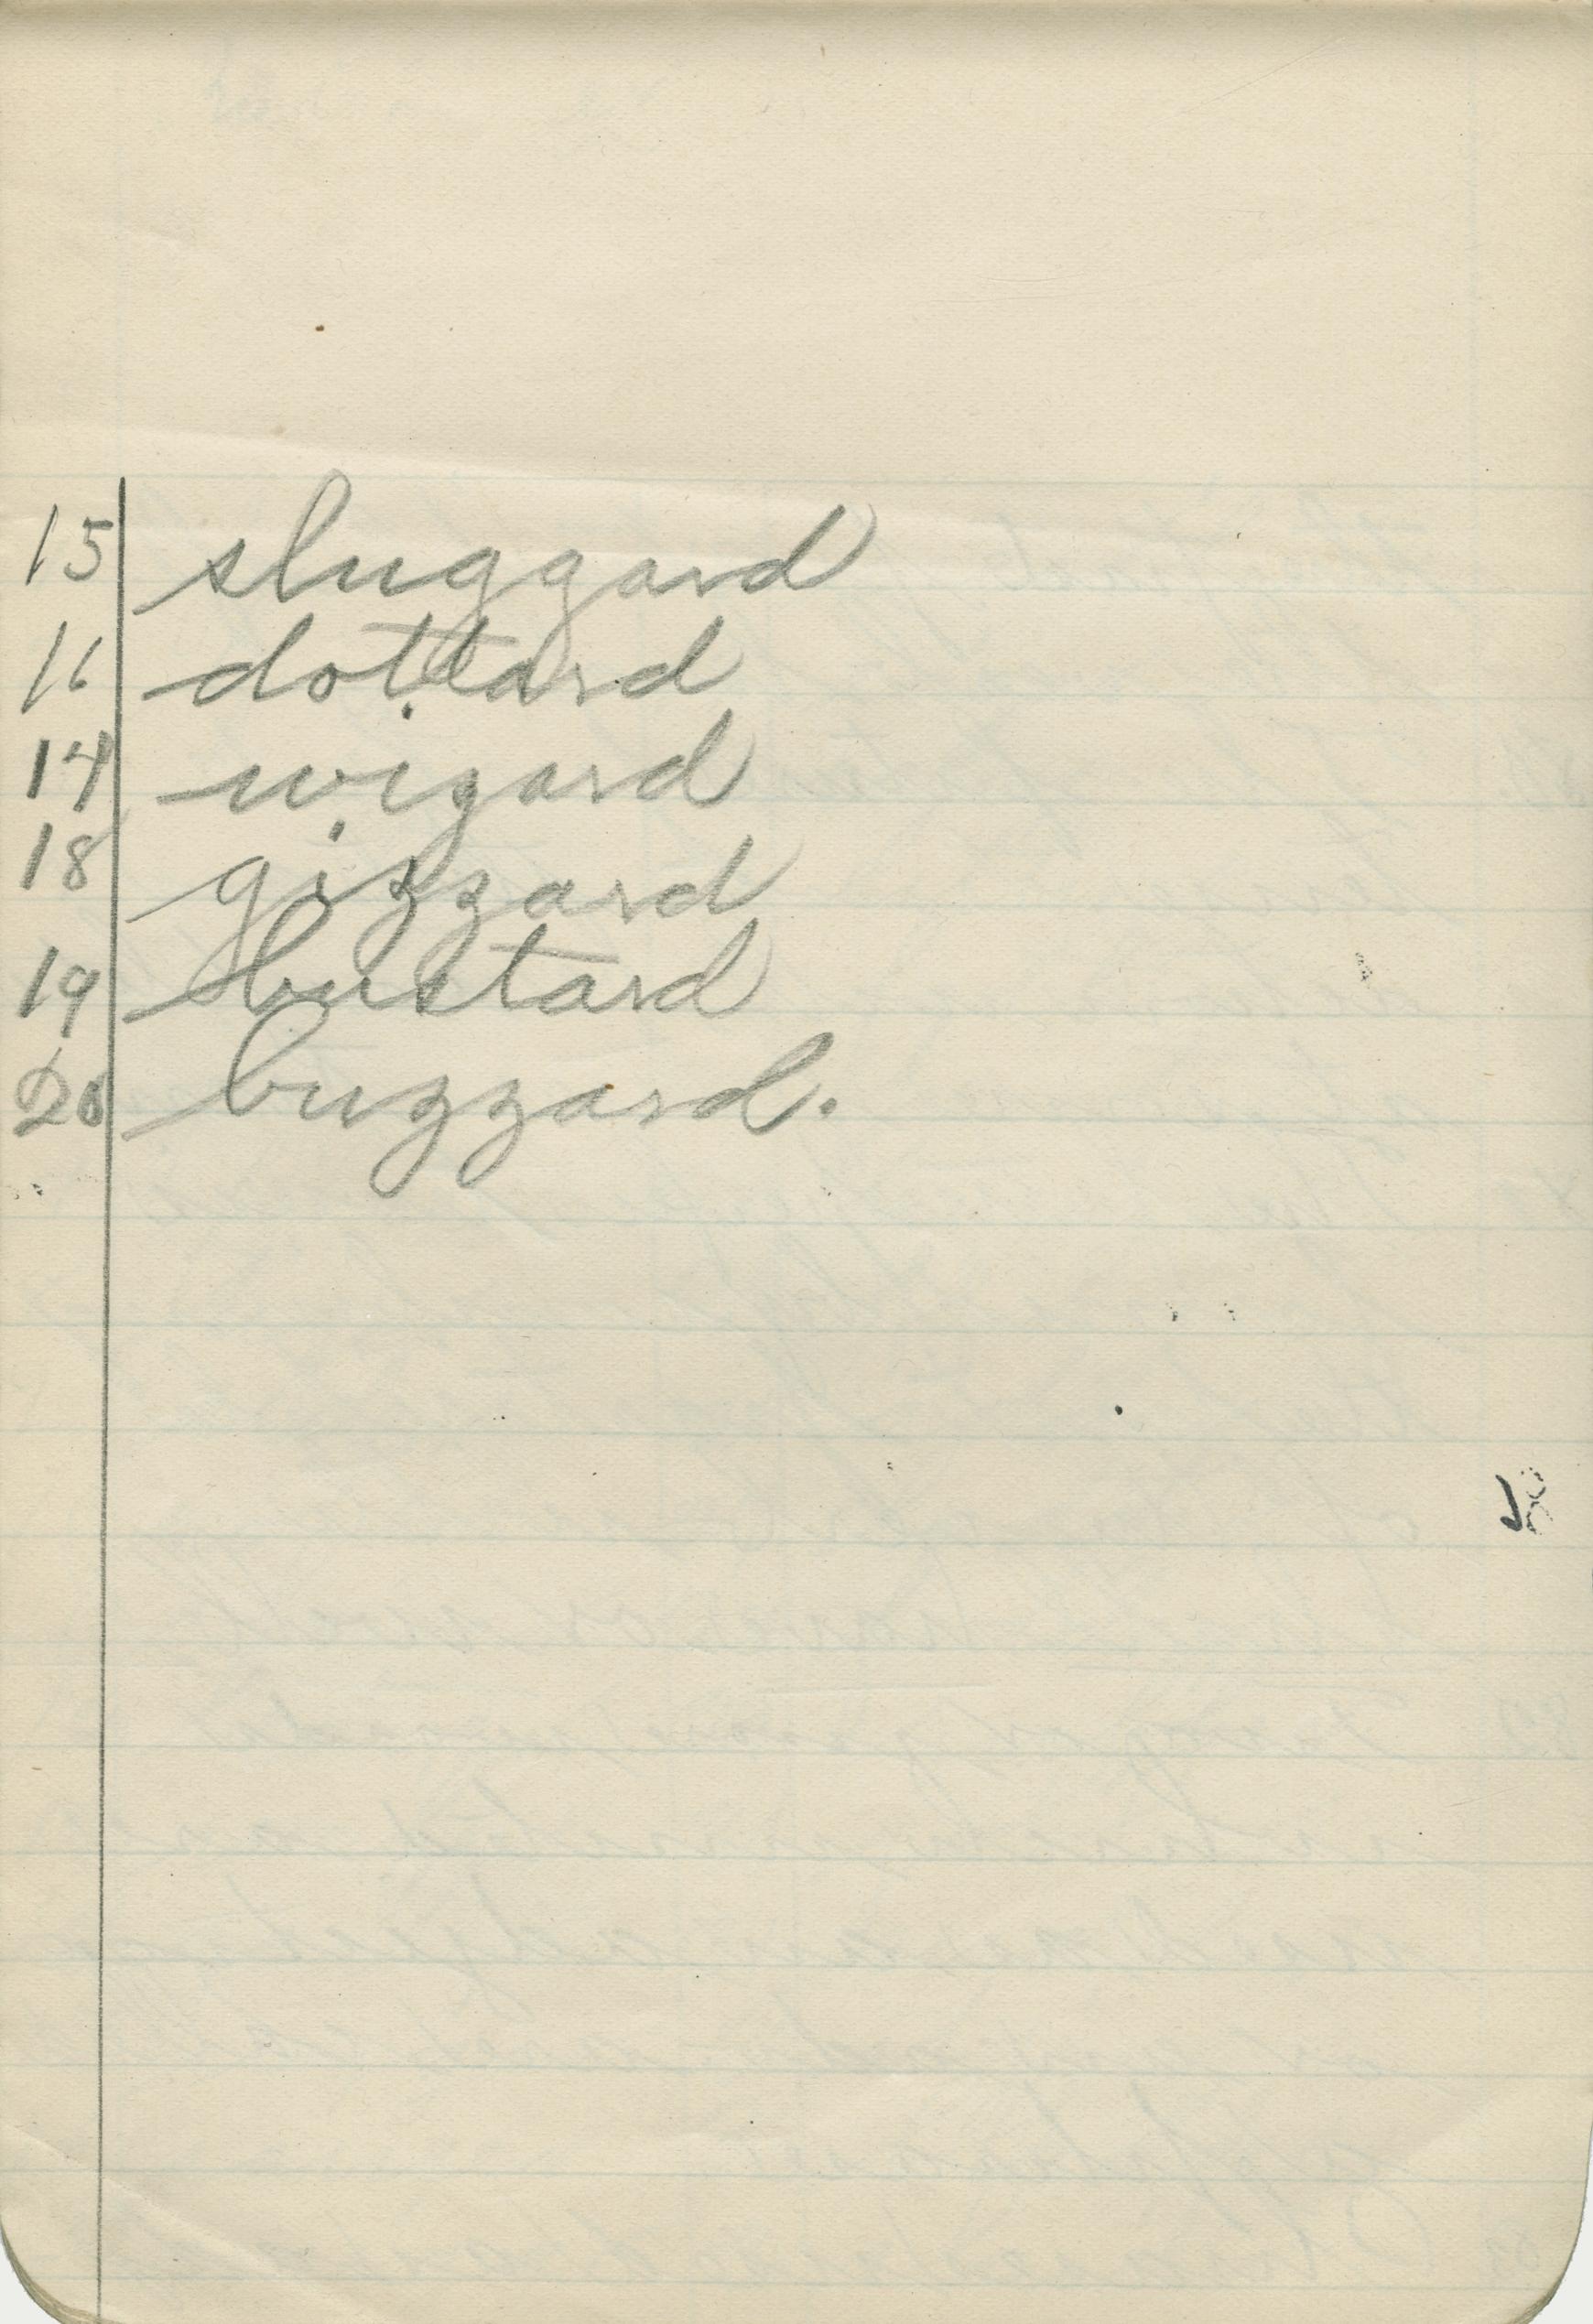 15 sluggard
16 dottard
14 wizard
18 gizzard
19 bustard
20 buzzard.